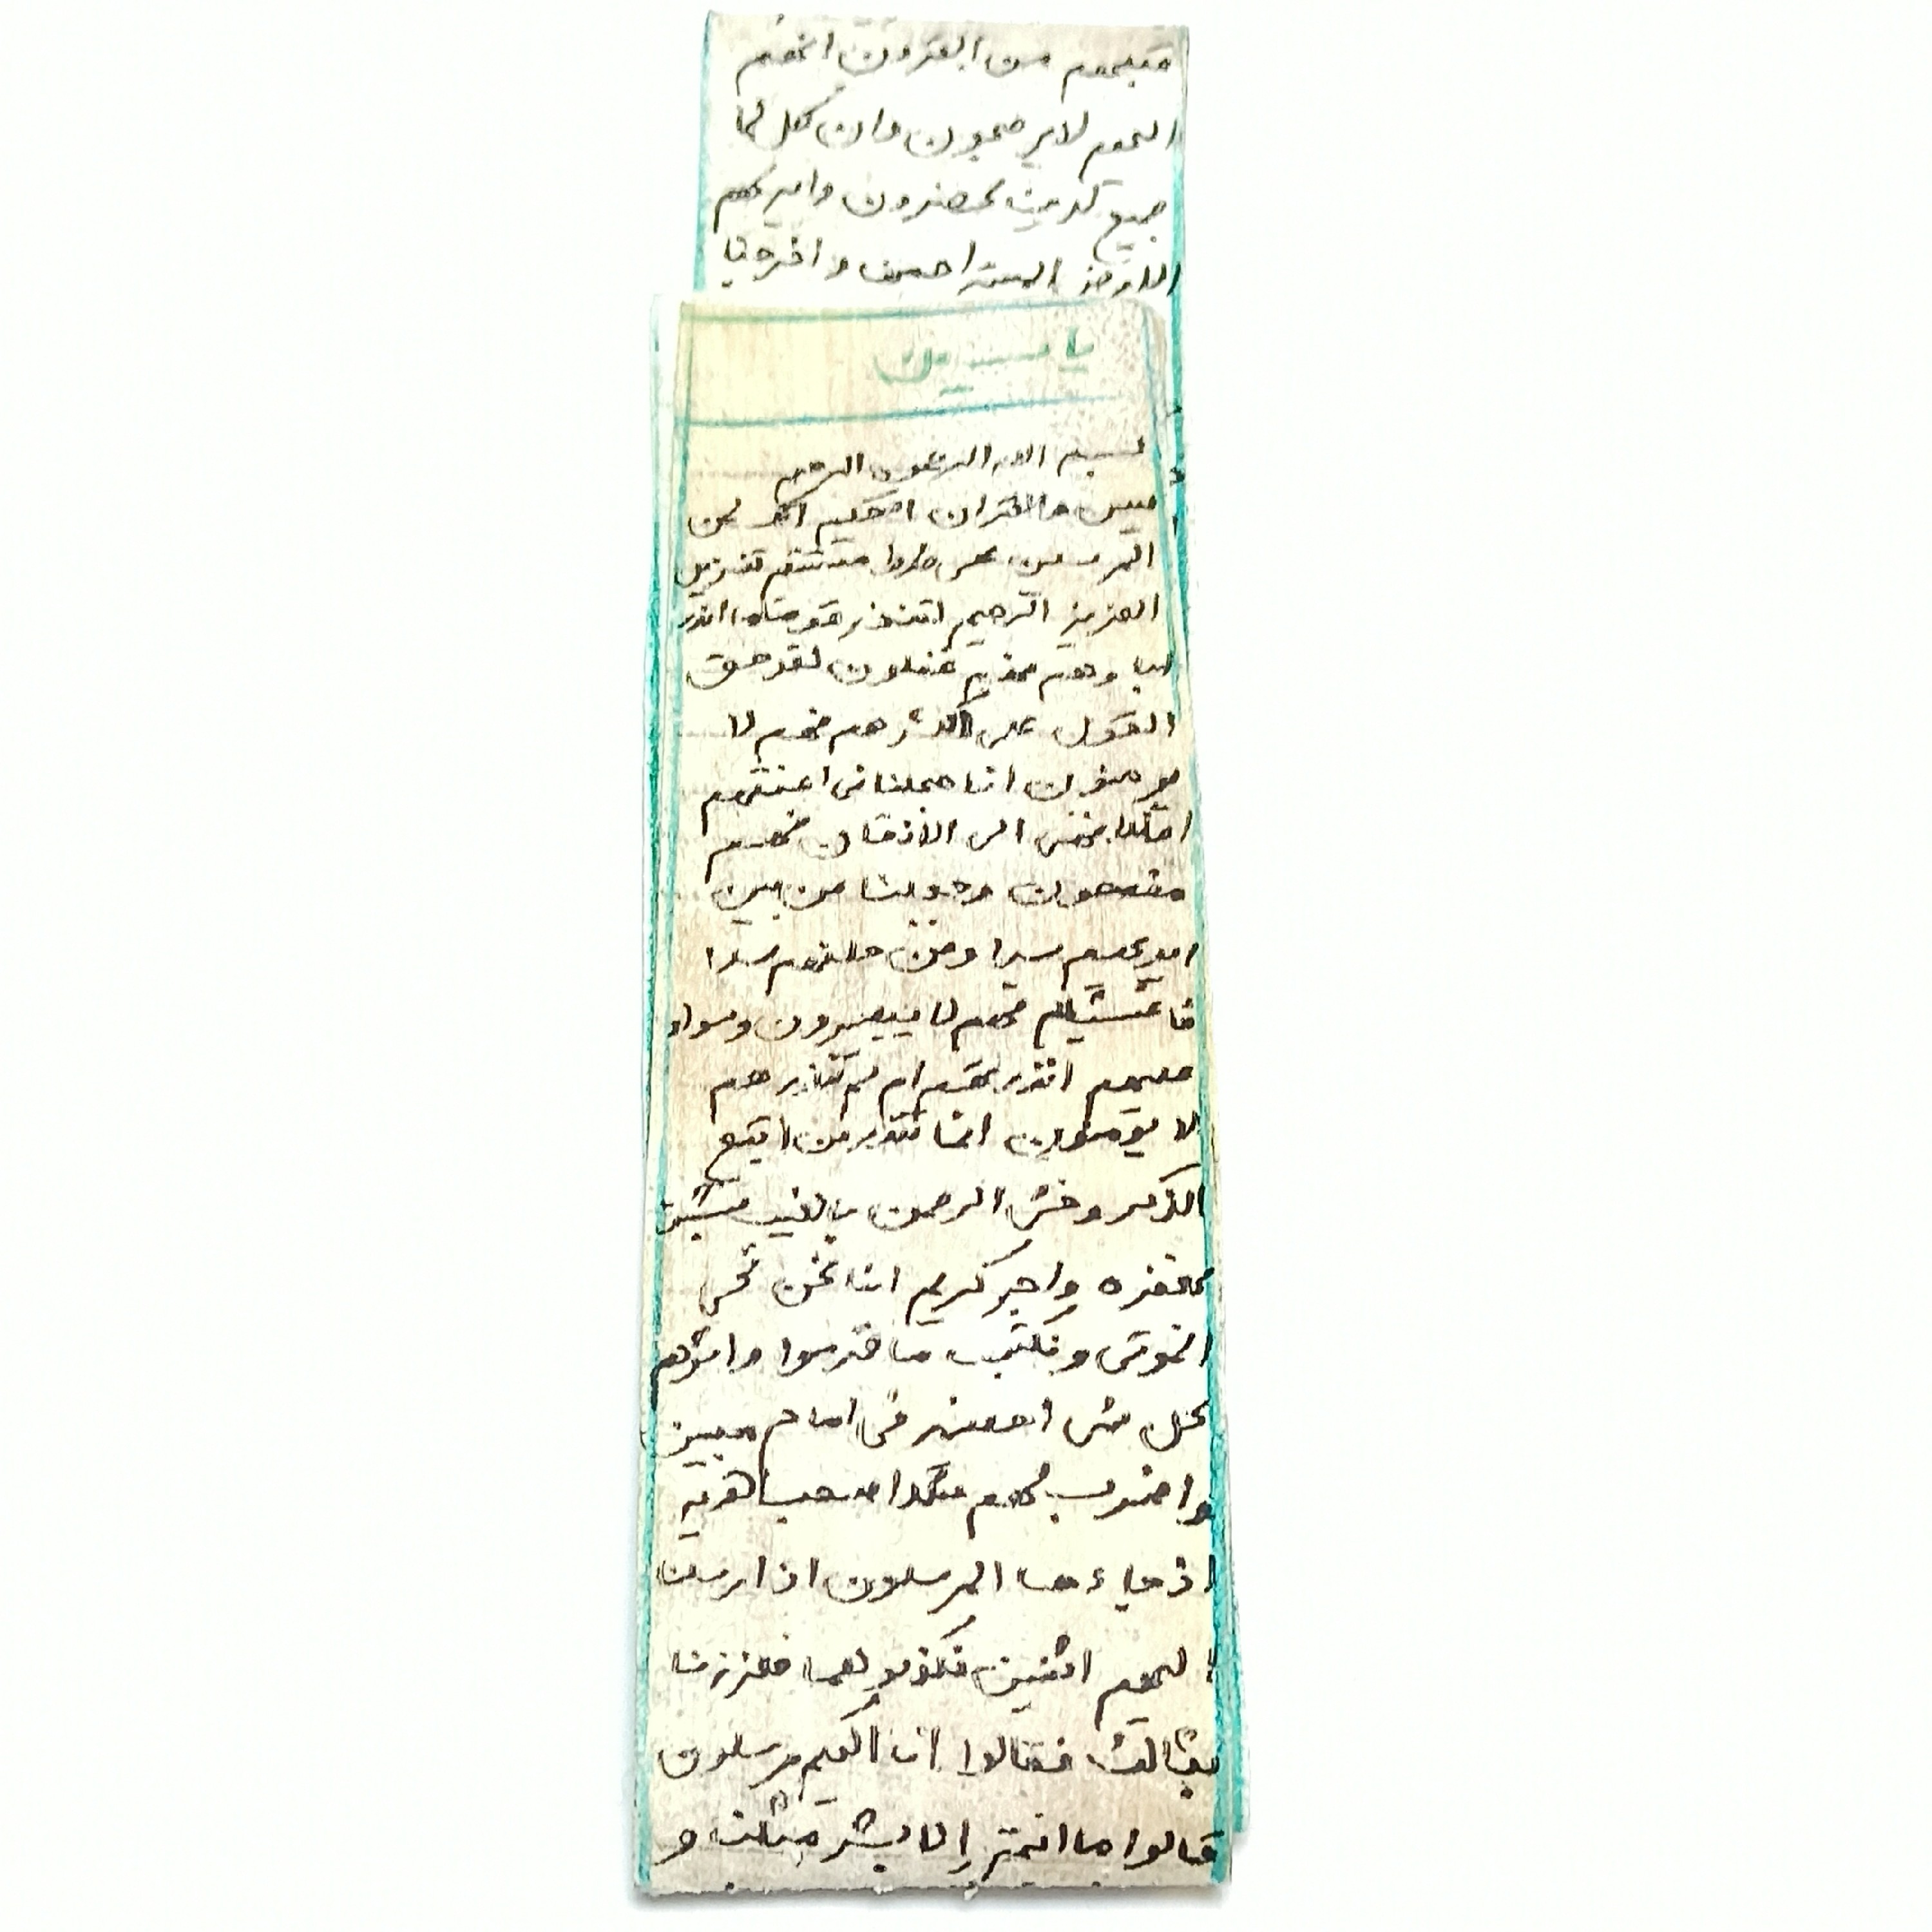 قبلهم من القرون انهم
اليهم لا يرجعون وان كل لما
جميع لدينا محضرون وايه لهم
الارض الميته احيينها واخرجنا
ياسين
بسم الله الرحمن الرحيم
يس والقران الحكيم انك لمن
المرسلين على صراط مستقيم تنزيل
العزيز الرحيم لتنذر قوما ما انذر
اباوهم فهم غفلون لقد حق
القول على اكثرهم فهم لا
يومنون انا جعلنا فى اعنقهم
اغللا فهى الى الاذقان فهم
مقمحون وجعلنا من بين
ايديهم سدا ومن خلفهم سدا
فاغشينهم فهم لا يبصرون وسواء
عليهم انذرتهم ام لم تنذرهم
لا يومنون انما تنذر من اتبع
الذكر وخشى الرحمن بالغيب فبشره
بمغفره واجر كريم انا نحن نحى
الموتى ونكتب ما قدموا واثرهم
كل شى احصينه فى امام مبين
واضرب لهم مثلا اصحب القريه
اذ جاءها المرسلون اذ ارسلنا
اليهم اثنين فكذبوهما فعززنا
بثالث فقالوا انا اليكم مرسلون
قالوا ما انتم الا بشر مثلنا و